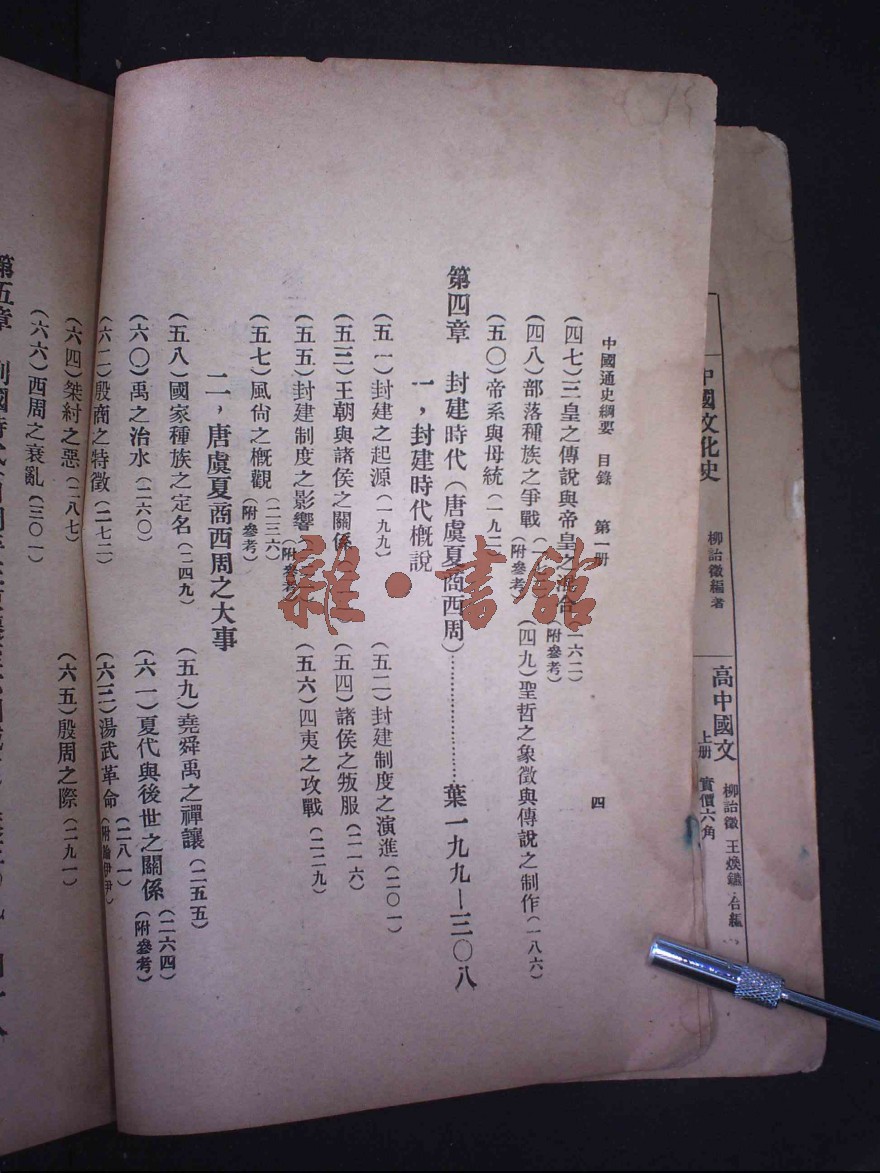 中國文化史 柳詒徵編著
高中國文 上册 實價六角 柳詒徵 王煥鑣 合編
中國通史綱要 目錄 第一册 四
(四七)三皇之傳說與帝皇之混合(一六二)(附參考)
(四八)部落種族之爭戰(附參考) (四九)聖哲之象徵與傳說之制作(一八六)
(五〇)帝系與母統(一九二)
第四章 封建時代(唐虞夏商西周)……………………葉一九九—三〇八
一,封建時代概說
(五一)封建之起源(一九九) (五二)封建制度之演進(二〇一)
(五三)王朝與諸侯之關係 (五四)諸侯之叛服(二一六)
(五五)封建制度之影響(附參考) (五六)四夷之攻戰(二二九)
(五七)風尙之概觀(二三六)(附參考)
二,唐虞夏商西周之大事
(五八)國家種族之定名(二四九) (五九)堯舜禹之禪讓(二五五)
(六〇)禹之治水(二六〇) (六一)夏代與後世之關係(二六四)(附參考)
(六二)殷商之特徵(二七二) (六三)湯武革命(二八一)
(六四)桀紂之惡(二八七) (六五)殷周之際(二九一)
(六六)西周之衰亂(三〇一)
第五章
雜·書館